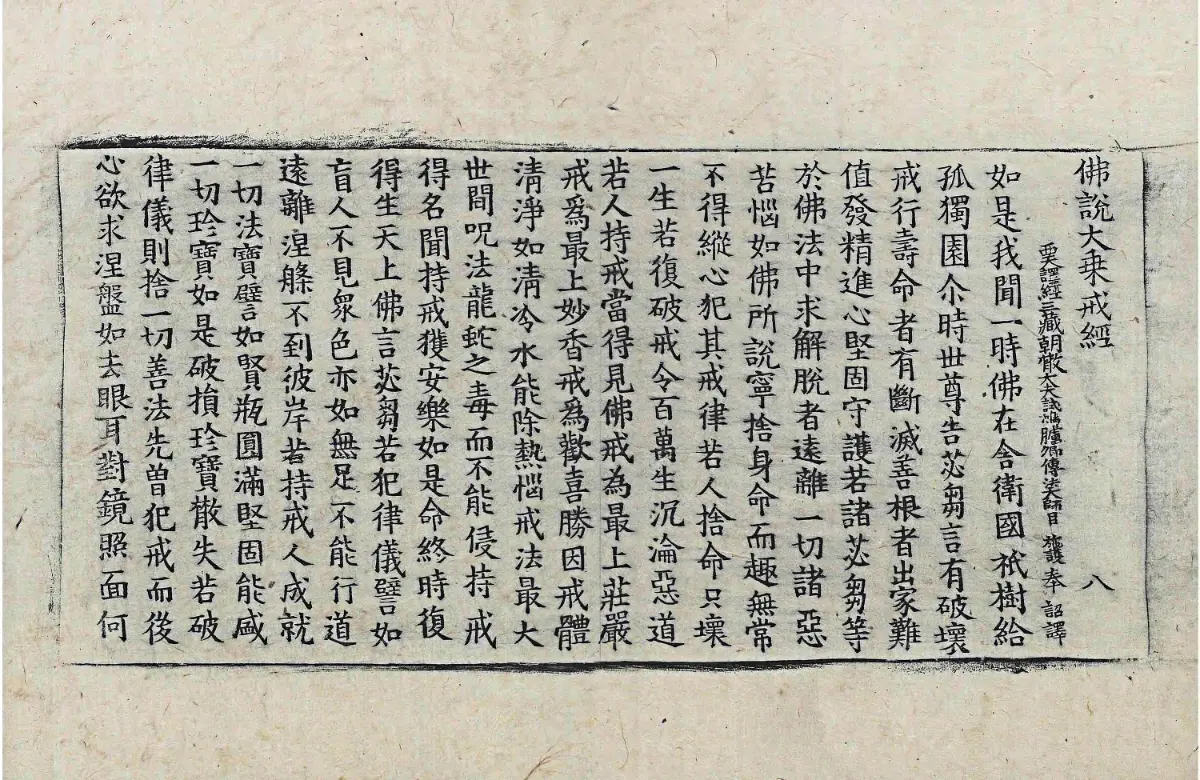 佛說大乗戒經 八
西天譯經三藏朝散大夫試鴻臚少卿傳法大師臣施護奉 詔譯
如是我聞一時佛在舎衛國祇樹給
孤獨園尒時世尊告苾芻言有破壞
戒行壽命者有斷滅善根者出家難
值發精進心堅固守護若諸苾芻等
於佛法中求解脫者遠離一切諸惡
苦惱如佛所說寧捨身命而趣無常
不得縱心犯其戒律若人捨命只壞
一生若復破戒令百萬生沉淪惡道
若人持戒當得見佛戒為最上莊嚴
戒爲最上妙香戒為歡喜勝因戒體
清淨如清冷水能除熱惱戒法最大
世間呪法龍蛇之毒而不能侵持戒
得名聞持戒獲安樂如是命終時復
得生天上佛言苾芻若犯律儀譬如
盲人不見衆色亦如無足不能行道
遠離涅槃不到彼岸若持戒人成就
一切法寶譬如賢瓶圓滿堅固能盛
一切珎寶如是破損珎寶散失若破
律儀則捨一切善法先曽犯戒而後
心欲求涅盤如去眼耳對鏡照面何